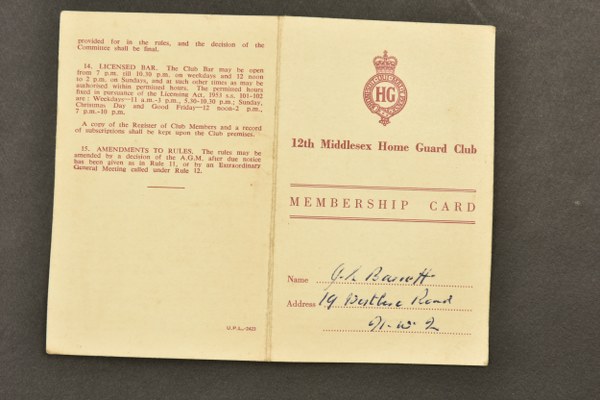 provided for in the rules, and the decision of the
Committee shall be final.
14. LICENSED BAR. The Club Bar may be open
from 7 p.m. till 10.30 p.m. on weekdays and 12 noon
to 2 p.m. on Sundays, and at such other times as may be
authorised within permitted hours. The permitted hours
fixed in pursuance of the Licensing Act, 1953 s.s. 101-102
are: Weekdays—11 a.m.-3 p.m., 5.30-10.30 p.m.; Sunday,
Christmas Day and Good Friday—12 noon-2 p.m.,
7 p.m.-10 p.m.
A copy of the Register of Club Members and a record
of subscriptions shall be kept upon the Club premises.
15. AMENDMENTS TO RULES. The rules may be
amended by a decision of the A.G.M. after due notice
has been given as in Rule 11, or by an Extraordinary
General Meeting called under Rule 12.
U.P.L.
HG
12th Middlesex Home Guard Club
MEMBERSHIP CARD
Name
Address 19 Road
N.W.2